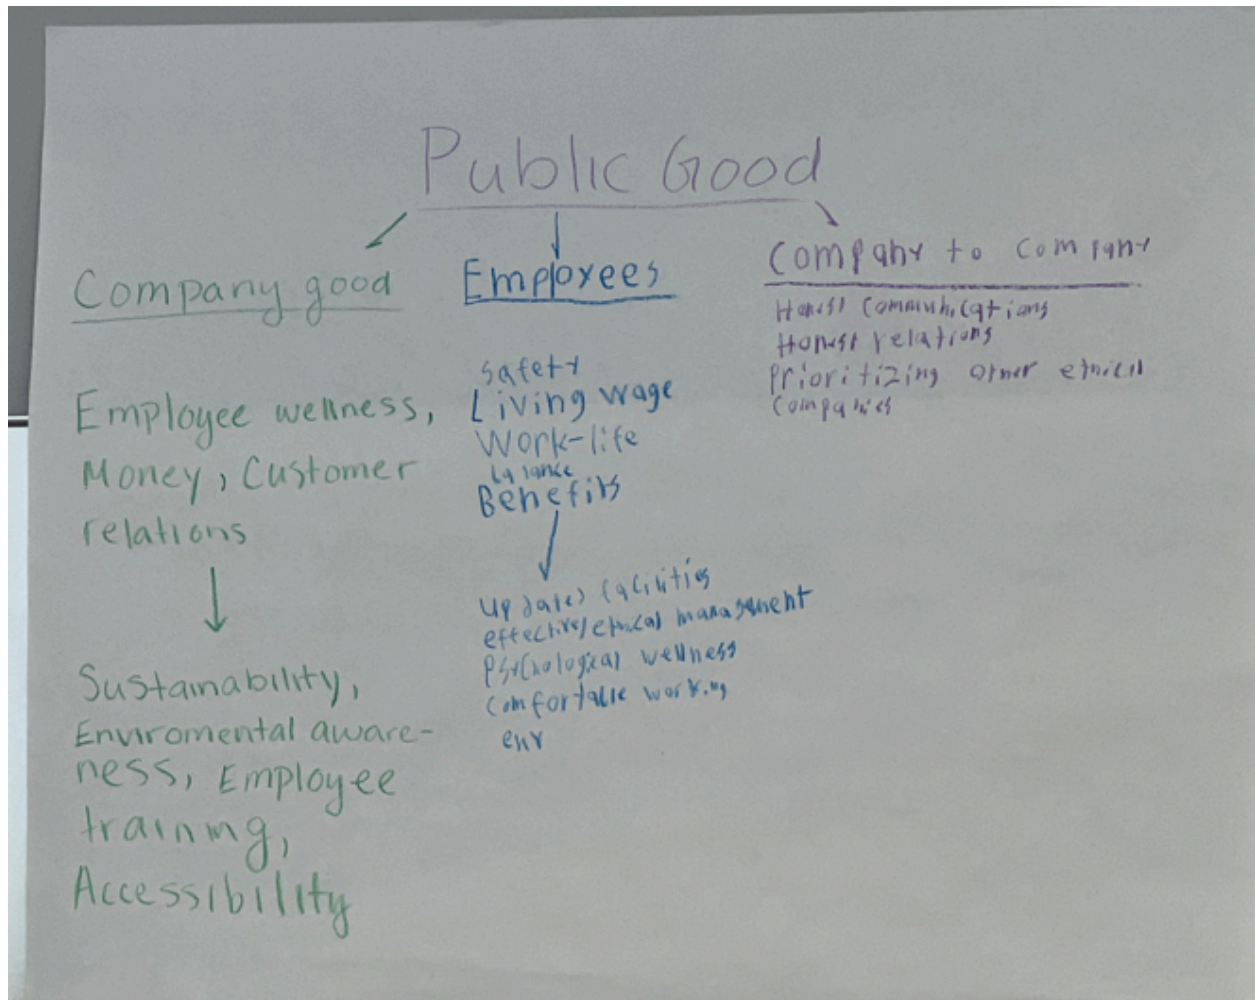 Public Good
Company good
Employee wellness,
Money, Customer
relations
Sustainability,
Enviromental aware-
ness, Employee
training,
Accessibility
Employees
Safety
Living wage
Work-life
balance
Benefits
updated facilities
effective/ethical management
Psychological wellness
comfortable working
env
Company to Company
Honest Communications
Honest relations
Prioritizing other ethical
Companies